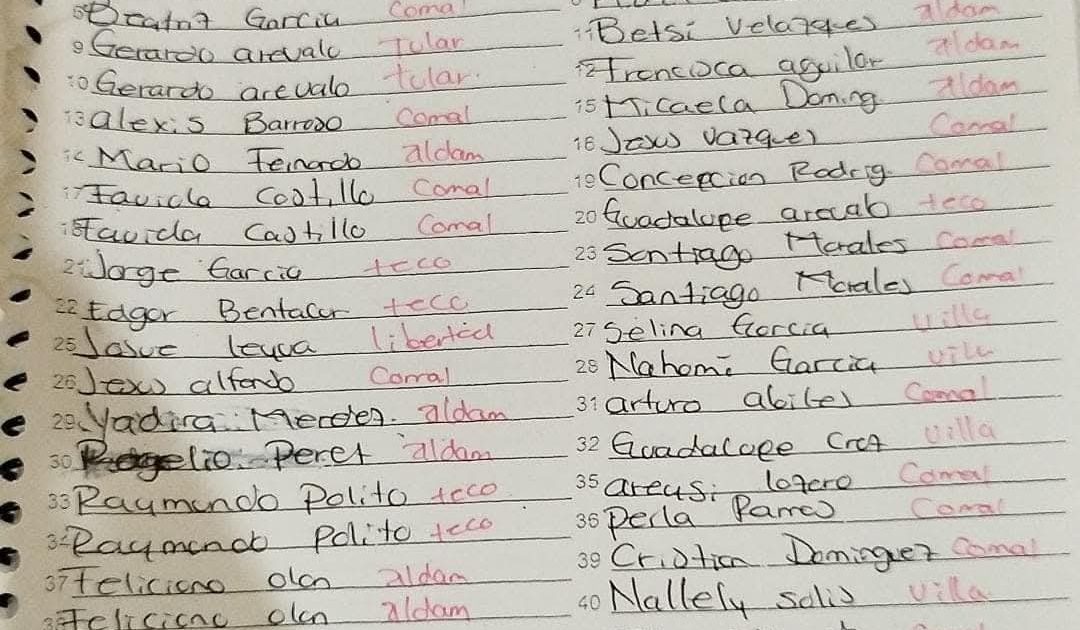 Garcia Comal
9 Gerardo arevalo Tular
10 Gerardo arevalo tular.
13 alexis Barroso Comal
14 Mario Fernando aldam
17 Favida Castillo Comal
18 Favida Castillo Comal
21 Jorge Garcia teco
22 Edgar Bentacur teco
25 Josue leyva libertad
26 Jesus alfondo Comal
29 Yadira Mendez. aldam
30 Rogelio Perez aldam
33 Raymundo Polito teco
34 Raymundo Polito teco
37 Feliciano olan aldam
38 Feliciano olan aldam
11 Betsi Velazques aldam
12 Francisca aguilar aldam
15 Micaela Doming aldam
16 Jesus Vazquez Comal
19 Concepcion Rodrig. Comal
20 Guadalupe arevalo teco
23 Santiago Morales Comal
24 Santiago Morales Comal
27 Selina Garcia Villa
28 Nahomi Garcia Villa
31 arturo abiles Comal
32 Guadalupe Cruz Villa
35 areusi lozero Comal
36 Perla Ramos Comal
39 Cristian Dominguez Comal
40 Nallely solis Villa